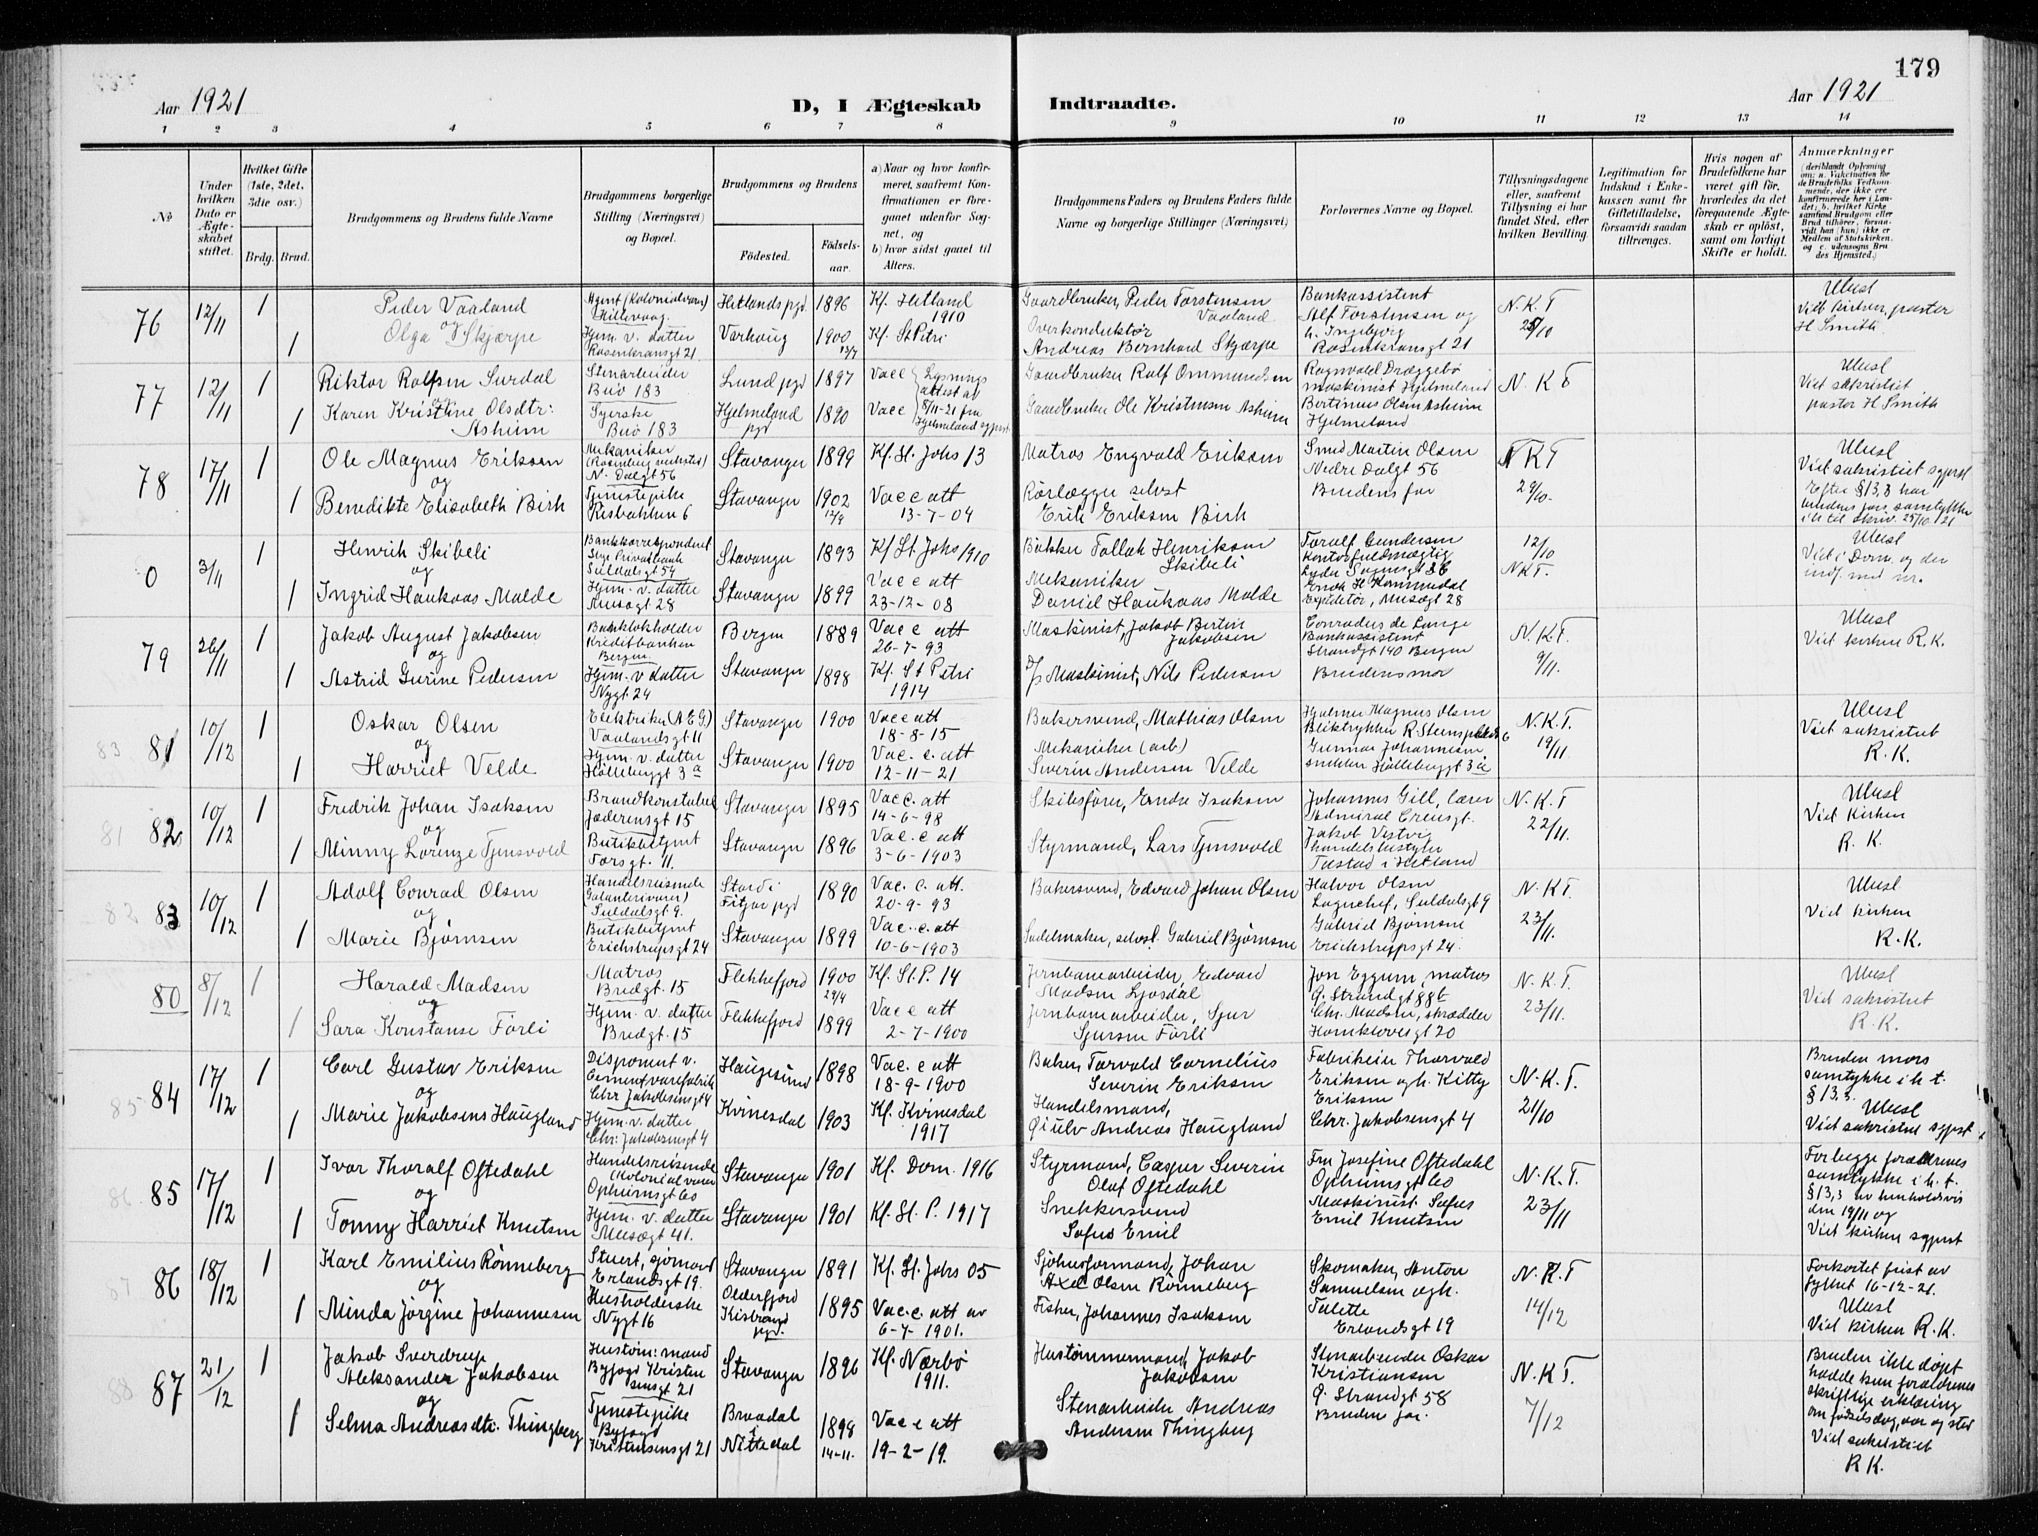 179
Aar 1921
D, I Ægteskab Indtraadte.
Aar 1921
1 2 3 4 5 6 7 8 9 10 11 12 13 14
№
Under hvilken Dato er Ægteskabet stiftet.
Hvilket Gifte (1ste, 2det, 3die osv.)
Brdg. Brud.
Brudgommens og Brudens fulde Navne
Brudgommens borgerlige Stilling (Næringsvei) og Bopæl.
Brudgommens og Brudens
Fødested. Fødselsaar.
a) Naar og hvor konfirmeret, saafremt Konfirmationen er foregaaet udenfor Sognet, og
b) hvor sidst gaaet til Alters.
Brudgommens Faders og Brudens Faders fulde Navne og borgerlige Stillinger (Næringsvei)
Forlovernes Navne og Bopæl.
Tillysningsdagene eller, saafremt Tillysning ei har fundet Sted, efter hvilken Bevilling.
Legitimation for Indskud i Enkekassen samt for Giftetilladelse, forsaavidt saadan tiltrænges.
Hvis nogen af Brudefolkene har været gift før, hvorledes da det foregaaende Ægteskab er opløst, samt om lovligt Skifte er holdt.
Anmærkninger
76 12/11 1
Peder Vaaland
og
Olga Skjærpe
Hjem. v. datter
Rosenkransgt 21
Hetland pgd 1896 Kf. Hetland 1910
1 Varhaug 1900 Kf. St Petri
Gaardbruker, Peder Torstensen Vaaland
Overkonduktør
Andreas Bernhard Skjærpe
Bankassistent
Alf Torstensen og
h. Ingeborg
Rosenkransgt 21
N.K.T
Viet kirken, pastor
H Smith
77 12/11 1
Rolfsen Surdal
Stenarbeider
Buø 183
Lund pgd 1897 Vacc
1 Karen Kristine Olsdtr:
Asheim
Syerske
Buø 183
Hjelmeland pgd 1890 Vacc
Gaardbruker Rolf Ommundsen
Gaardbruker Ole Kristensen Asheim
Ragnvald Dræggebø
maskinist Hjelmeland
Bertinius Olsen Asheim
Hjelmeland
N.K.T
Viet sakristiet
pastor H Smith
78 17/11 1
Ole Magnus Eriksen
og
1 Benedikte Elisabeth Birk
Mekaniker
(Rosenberg verksted)
N. Dalgt 56
Tjenestepike
Risbakken 6
Stavanger 1899 Kf. St. Johs 13
Stavanger 1902 Vacc att
13-7-04
Matros Engvald Eriksen
Rørlægger selvst
Erik Eriksen Birk
Smed Martin Olsen
Nedre Dalgt 56
Brudens far
N.K.T
29/10.
Viet sakristiet sgprst
Efter §13,3 har
brudens far samtykke
0 3/11 1
Henrik Skibeli
og
1 Ingrid Haukaas Malde
Suldalsgt 54
Hjem. v. datter
Musegt 28
Stavanger 1893 Kf St. Johs 1910
Stavanger 1899 Vacc att
23-12-08
Bøkker Tollak Henriksen
Skibeli
Mekaniker
Daniel Haukaas Malde
Toralf Gundersen
Kontorfuldmægtig
Expeditør, Musegt 28
12/10
N.K.T.
Viet i Dom. og der
indf. med nr.
79 26/11 1
Jakob August Jakobsen
og
1 Astrid Gurine Pedersen
Bankbokholder
Kreditbanken
Bergen
Hjem. v datter
Nygt. 24
Bergen 1889 Vacc att
26-7-93
Stavanger 1898 Kf. St Petri
1914
Maskinist, Jakob Bertin
Jakobsen
Maskinist, Nils Pedersen
Conradus de Lange
Bankassistent
Strandgt 140 Bergen
Brudens mor
N.K.T.
9/11.
Viet kirken R.K.
83 81 10/12 1
Oskar Olsen
og
1 Harriet Velde
Elektriker (A E G)
Vaalandsgt 11
Hjem. v. datter
Hølleberggt 3a
Stavanger 1900 Vacc att
18-8-15
Stavanger 1900 Vac.c. att
12-11-21
Bakersvend, Mathias Olsen
Mekaniker (arb)
Severin Andersen Velde
Hjalmar Magnus Olsen
Gunnar Johannesen
snekker Hølleberggt 3a
N.K.T.
19/11.
Viet sakristiet
R.K.
81 82 10/12 1
Fredrik Johan Isaksen
og
1 Minny Lorenze Tjensvold
Brandkonstabel
Jæderensgt 15
Butikbetjent
Torsgt. 11.
Stavanger 1895 Vacc. att
14-6-98
Stavanger 1896 Vac.c att
3-6-1903
Styrmand, Lars Tjensvold
Johannes Gill, lærer
Jakob Vestvig
handelsbestyrer
Tastad i Hetland
N.K.T
22/11.
Viet kirken
R.K.
82 83 10/12 1
Adolf Conrad Olsen
og
1 Marie Bjørnsen
Handelsreisende
(Galanterivarer)
Suldalsgt 9.
Butikbetjent
Erichstrupsgt 24
Stord i
Fitjar pgd 1890 Vac.c. att.
20-9-93
Stavanger 1899 Vac.c. att
10-6-1903
Bakersvend, Edvard Johan Olsen
Sadelmaker, selvst. Gabriel Bjørnsen
Halvor Olsen
Suldalsgt 9
Gabriel Bjørnsen
Erichstrupsgt 24.
N.K.T.
23/11.
Viet kirken
R.K.
80 8/12 1
Harald Madsen
og
1 Sara Konstanse Førli
Matros
Bredgt. 15
Hjem. v. datter
Bredgt. 15
Flekkefjord 1900 Kf. St. P. 14
29/4
Flekkefjord 1899 Vacc att
2-7-1900
Jernbanearbeider, Edvard
Madsen Ljosdal
Jernbanearbeider, Sjur
Sjursen Førli
Jon Eggum, matros
Ø. Strandgt 88b
Chr. Madsen, skrædder
Hamkloveigt 20
N.K.T.
23/11.
Viet sakristiet
R.K.
85 84 17/12 1
Carl Gustav Eriksen
og
1 Marie Jakobsens Haugland
Disponent v.
Cementvarefabrik
Chr Jakobsensgt 4
Hjem. v. datter
Chr. Jakobsensgt 4
Haugesund 1898 Vac.c att
18-9-1900
Kvinesdal 1903 Kf. Kvinesdal
1917
Baker Torvald Cornelius
Severin Eriksen
Handelsmand,
Andreas Haugland
Fabrikeier Thorvald
Eriksen og h. Kitty
Eriksen
Chr. Jakobsensgt 4
N.K.T.
21/10
Bruden mors
samtykke i h.t.
§13,3.
Viet sakristiet sgprst
86 85 17/12 1
Ivar Thoralf Oftedahl
og
1 Tonny Harriet Knutsen
Handelsreisende
(Kolonialvarer)
Opheimsgt 60
Hjem. v. datter
Musegt 41.
Stavanger 1901 Kf. Dom. 1916
Stavanger 1901 Kf. St. P. 1917
Styrmand, Casper Severin
Olaf Oftedahl
Snekkersvend
Sofus Emil
Fru Josefine Oftedahl
Opheimsgt 60
Maskinist Sofus
Emil Knutsen
N.K.T.
23/11
For begge forældrenes
samtykke i h.t.
§13,3 av henholdsvis
den 19/11 og
Viet kirken sgprst
87 86 18/12 1
Karl Emilius Rønneberg
og
1 Minda Jørgine Johannesen
Stuert, sjømand
Erlandsgt 19.
Husholderske
Nygt 16
Stavanger 1891 Kf. St. Johs 05
Olderfjord
Kistrand pgd. 1895 Vac.c. att av
6-7-1901.
Sjøhusformand, Johan
Axel Olsen Rønneberg
Fisker, Johannes Isaksen
Skomaker, Anton
Samuelsen og h.
Talette
Erlandsgt 19
N.K.T
14/12
Forkortet frist av
fylket 16-12-21.
Viet kirken R.K.
88 87 21/12 1
Jakob Sverdrup
Aleksander Jakobsen
og
1 Selma Andreasdtr. Thingberg
Hustøm: mand
Byfogd Kristensensgt 21
Tjenestepike
Byfogd
Kristensensgt 21
Stavanger 1896 Kf. Nærbø
1911.
Braadal
i
Nittedal 1898 Vacc att
14-11. 19-2-19.
Hustømmermand, Jakob
Jakobsen
Stenarbeider Andreas
Andersen Thingberg
Stenarbeider Oskar
Kristiansen
Ø. Strandgt 58
Brudens far.
N.K.T.
7/12
Bruden ikke døpt
hadde kun forældrenes
skriftlige erklæring
om fødselsdag, aar og sted
Viet sakristiet
R K.